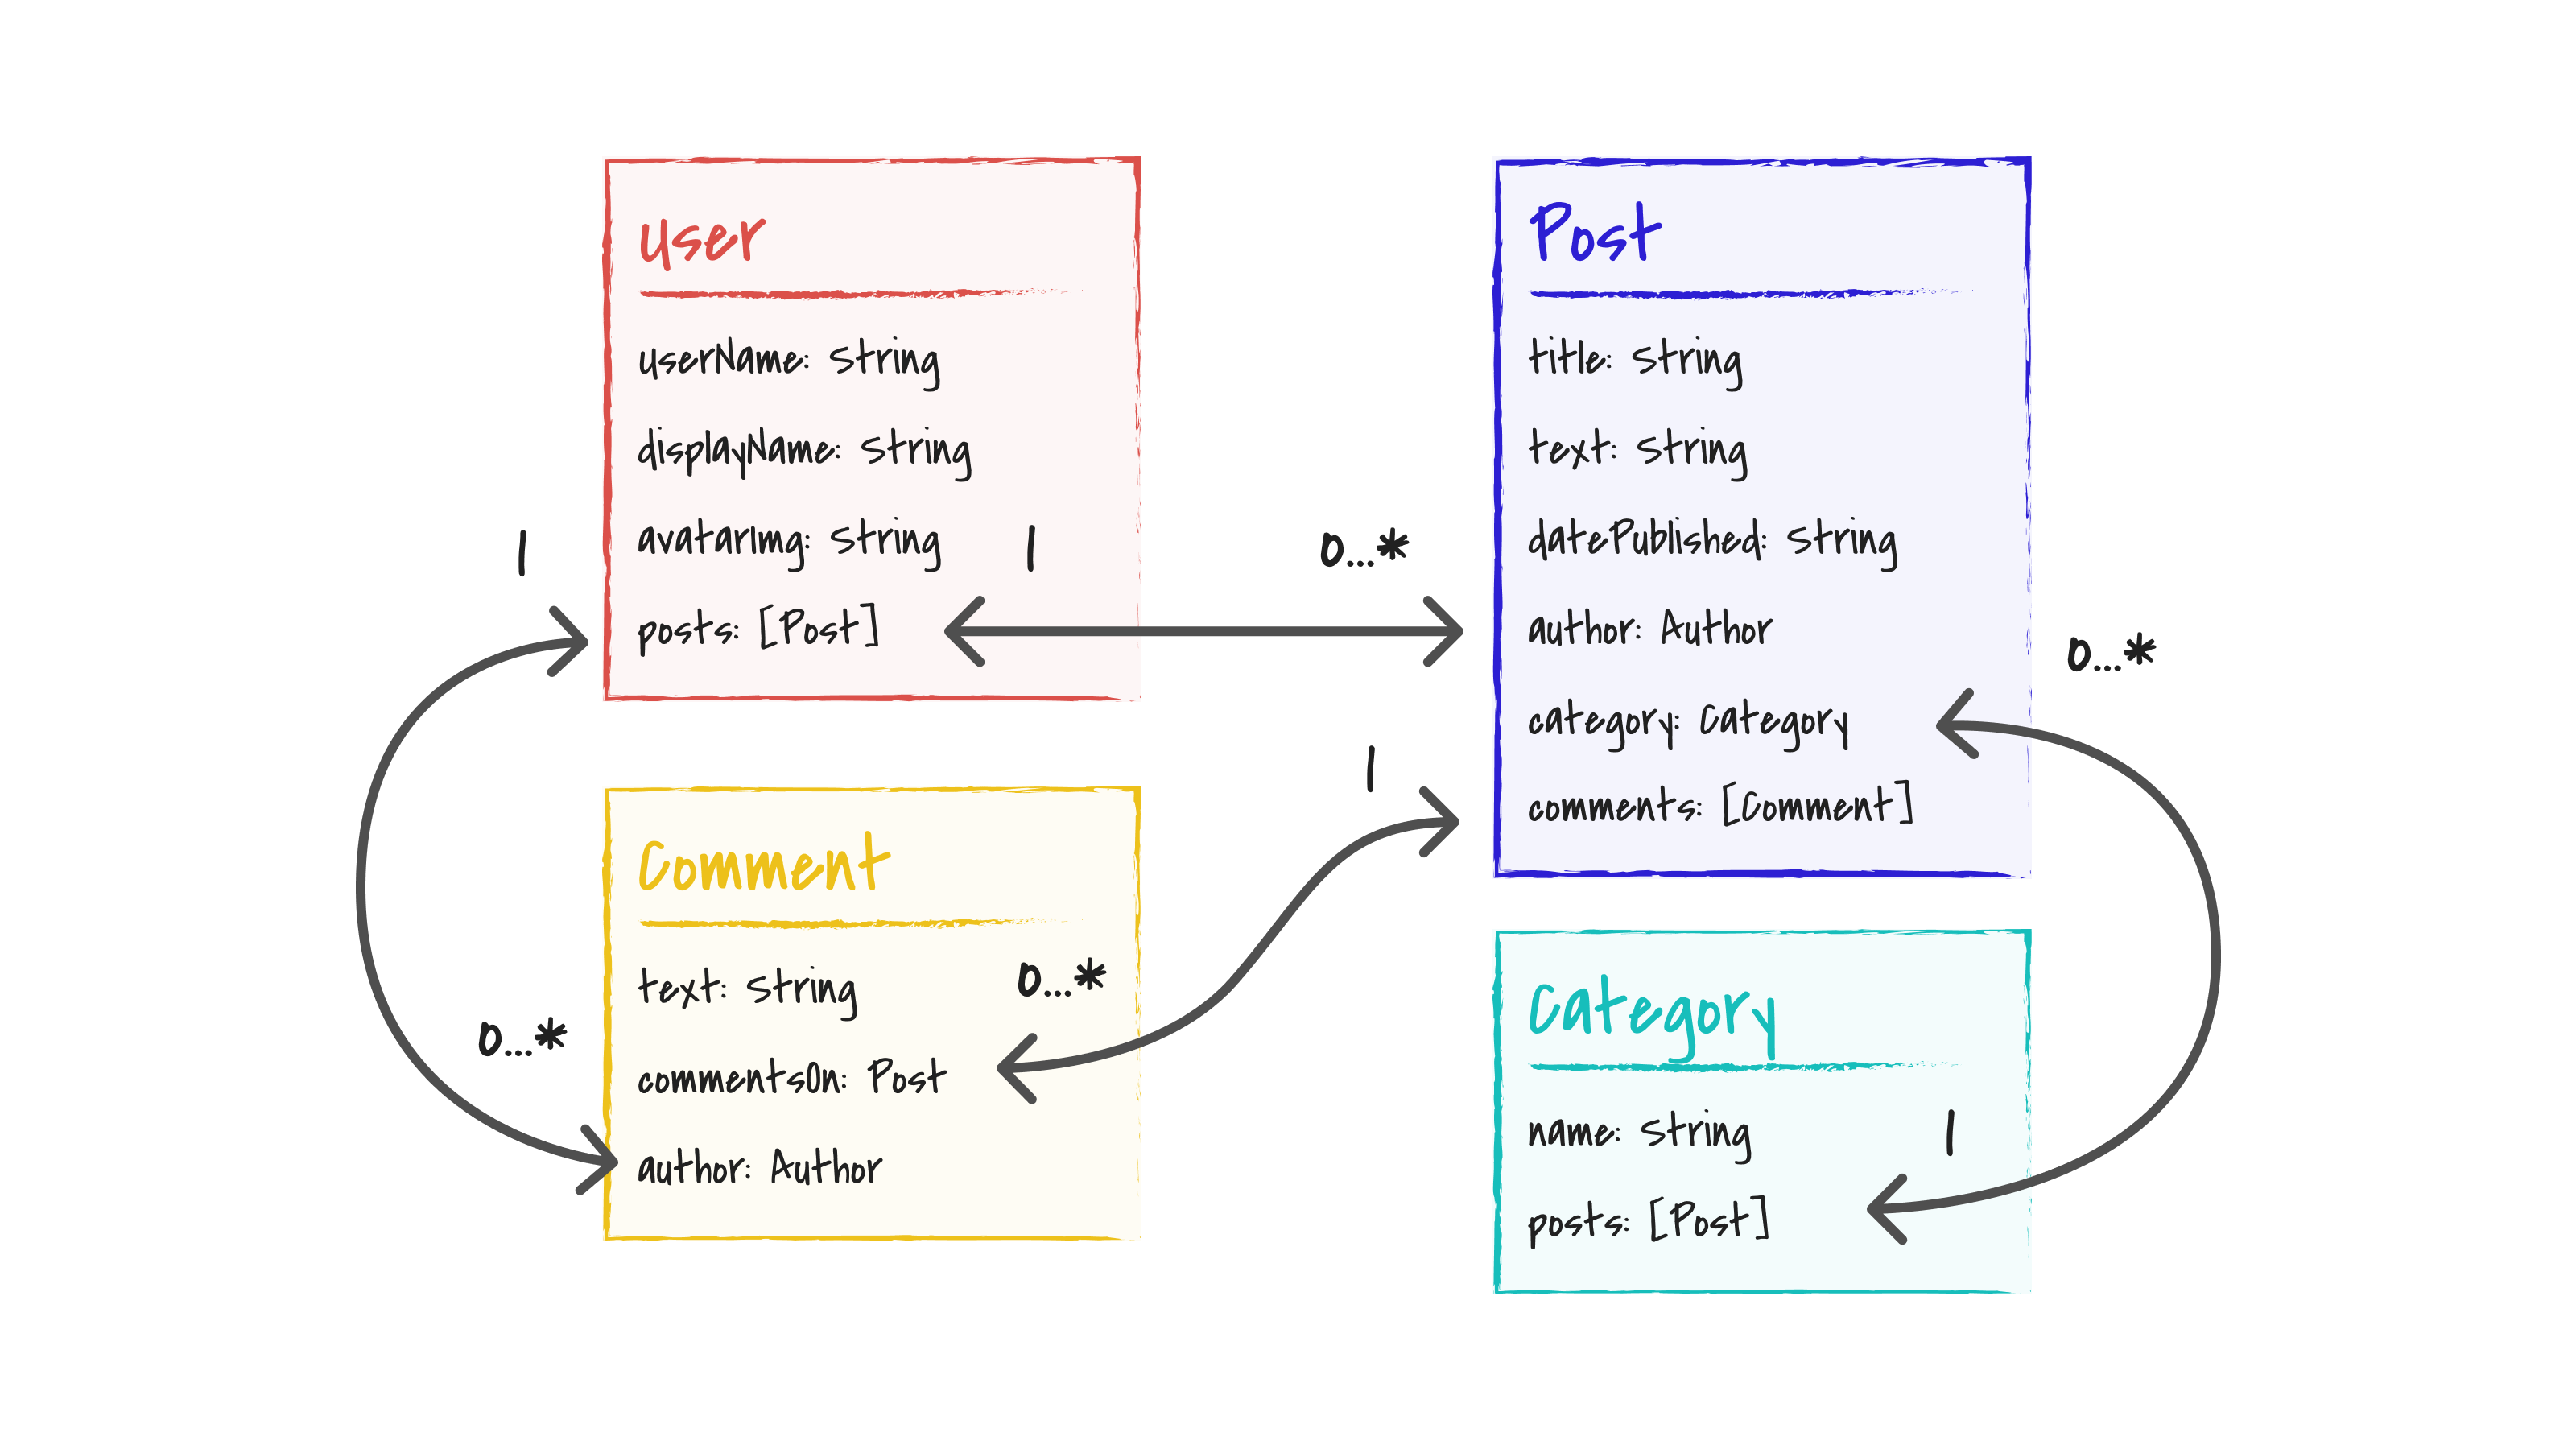 User
userName: String
displayName: String
avatarImg: String
posts: [Post]
1
1
0...*
Post
title: String
text: String
datePublished: String
author: Author
category: Category
comments: [Comment]
0...*
1
Comment
text: String
commentsOn: Post
author: Author
0...*
0...*
Category
name: String
posts: [Post]
1